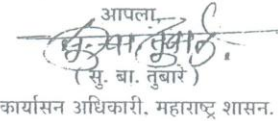 आपला,
( सु. बा. तुंबारे )
कार्यासन अधिकारी, महाराष्ट्र शासन.